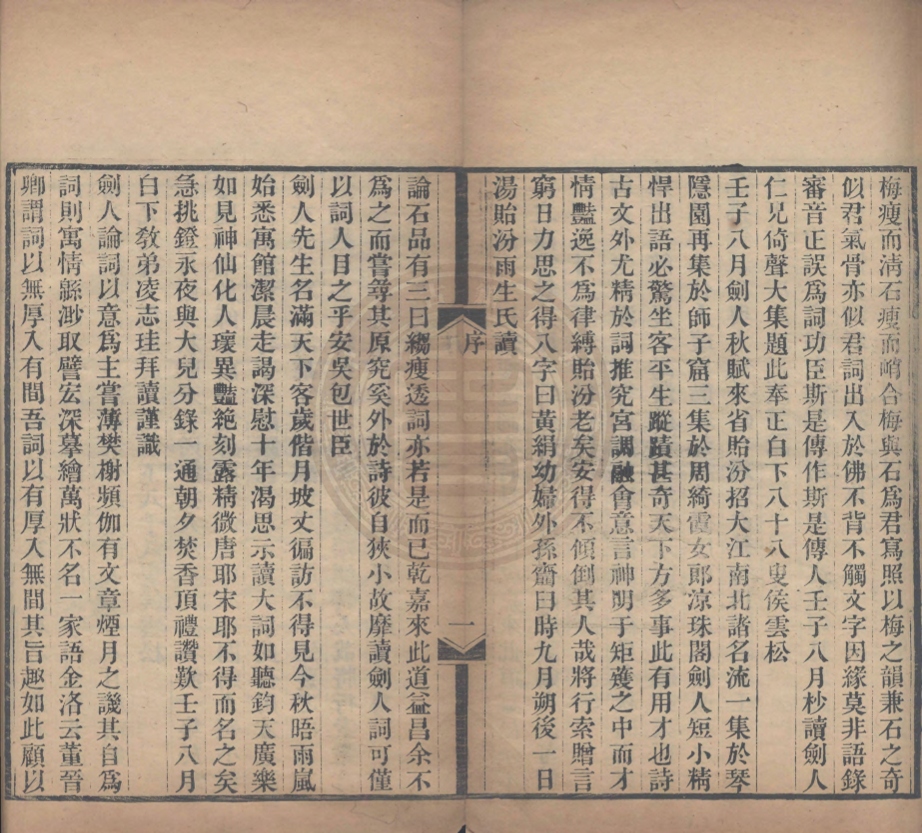 梅瘦而清石瘦而峭合梅與石爲君寫照以梅之韻兼石之奇
似君氣骨亦似君詞出入於佛不背不觸文字因緣莫非語錄
審音正誤爲詞功臣斯是傳作斯是傳人壬子八月杪讀劍人
仁兄倚聲大集題此奉正白下八十八叟侯雲松
壬子八月劍人秋賦來省貽汾招大江南北諸名流一集於琴
隱園再集於師子窟三集於周綺霞女郎涼珠閣劍人短小精
悍出語必驚坐客平生蹤蹟甚奇天下方多事此有用才也詩
古文外尤精於詞推究宮調融會意言神明于矩矱之中而才
情豔逸不爲律縛貽汾老矣安得不傾倒其人哉將行索贈言
窮日力思之得八字曰黃絹幼婦外孫齏臼時九月朔後一日
湯貽汾雨生氏讀
序
一
論石品有三曰縐瘦透詞亦若是而已乾嘉來此道益昌余不
爲之而嘗尋其原究奚外於詩彼自狹小故靡讀劍人詞可僅
以詞人目之乎安吳包世臣
劍人先生名滿天下客歲偕月坡丈徧訪不得見今秋晤雨嵐
始悉寓館潔晨走謁深慰十年渴思示讀大詞如聽鈞天廣樂
如見神仙化人瓌異豔絶刻露精微唐耶宋耶不得而名之矣
急挑鐙永夜與大兒分錄一通朝夕焚香頂禮讚歎壬子八月
白下敎弟凌志珪拜讀謹識
劍人論詞以意爲主嘗薄樊榭頻伽有文章煙月之譏其自爲
詞則寓情緜渺取譬宏深摹繪萬狀不名一家語金洛云董晉
卿謂詞以無厚入有間吾詞以有厚入無間其旨趣如此顧以